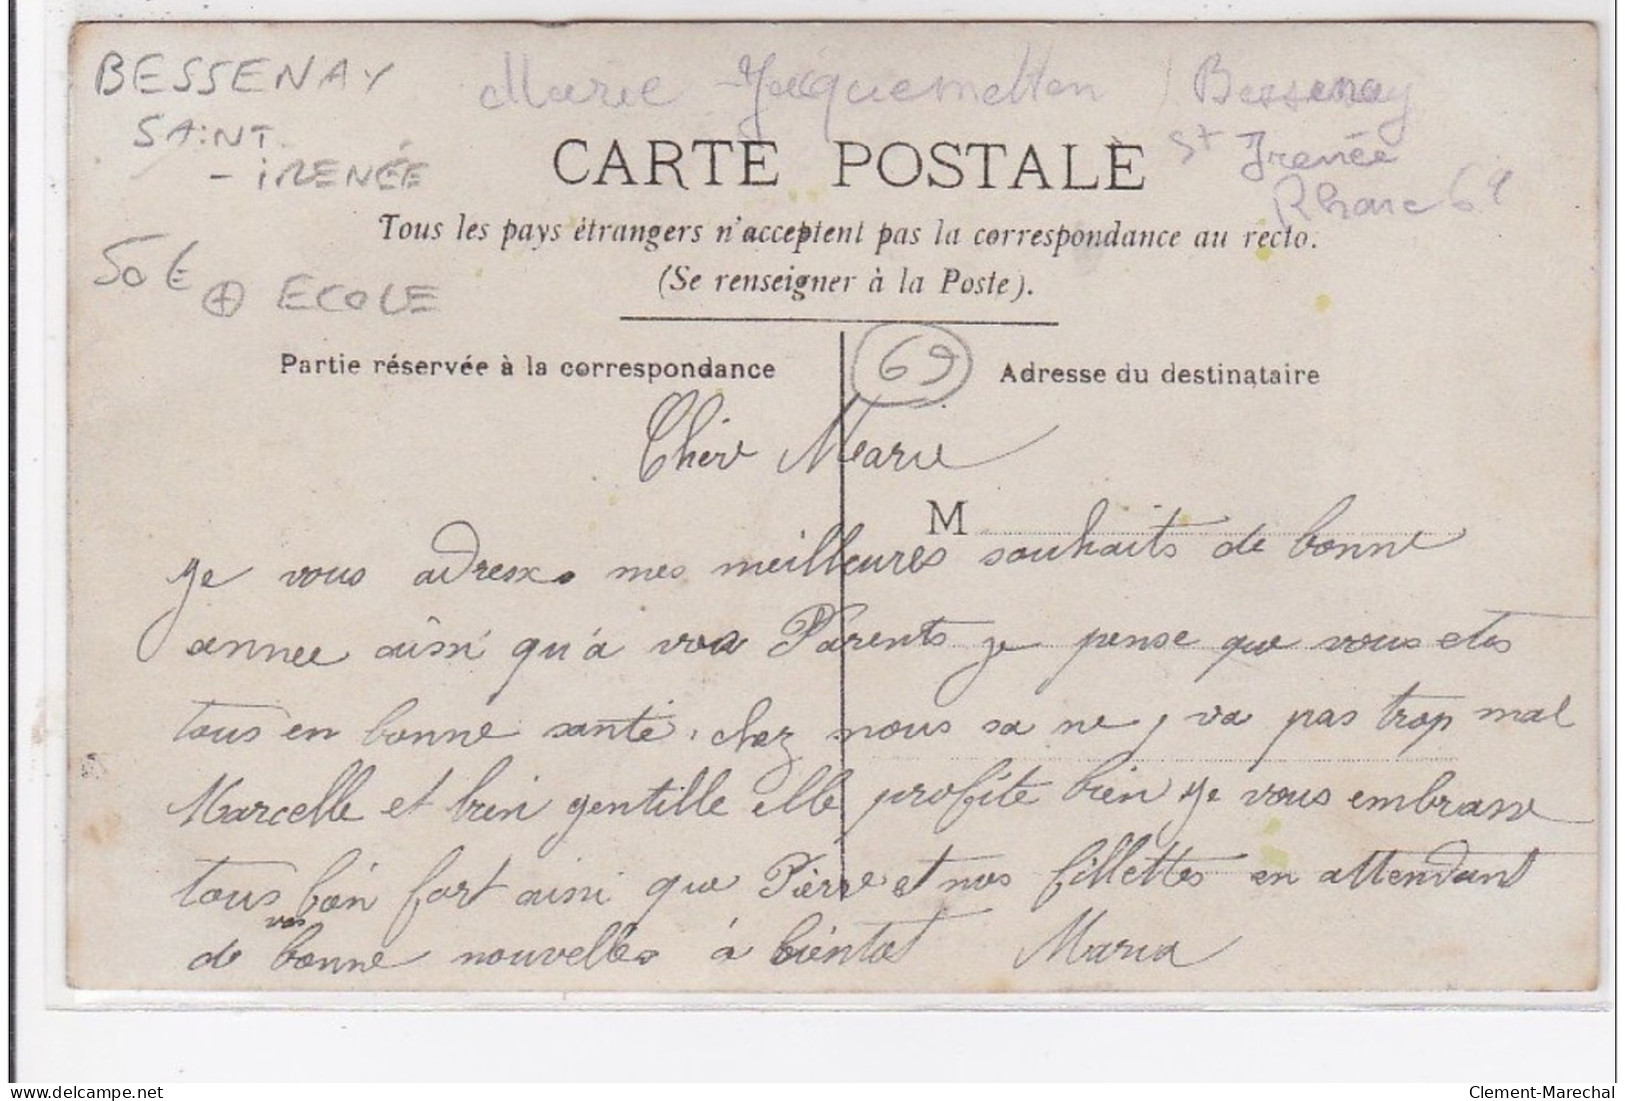 BESSENAY
SAINT
- IRENÉE
50 € + ECOLE
Marie Jacquemetton Bessenay
St Irenée
Rhone 69
CARTE POSTALE
Tous les pays étrangers n'acceptent pas la correspondance au recto.
(Se renseigner à la Poste).
Partie réservée à la correspondance
69
Adresse du destinataire
Chère Marie
M
je vous adresse mes meilleures souhaits de bonne
annee ainsi qu'a vos Parents je pense que vous etes
tous en bonne santé, chez nous sa ne, va pas trop mal
Marcelle et bien gentille elle profite bien je vous embrasse
tous bien fort ainsi que Pierre et nos fillettes en attendant
de vos bonne nouvelles à bientot Maria
delcampe.net
Clement-Marechal